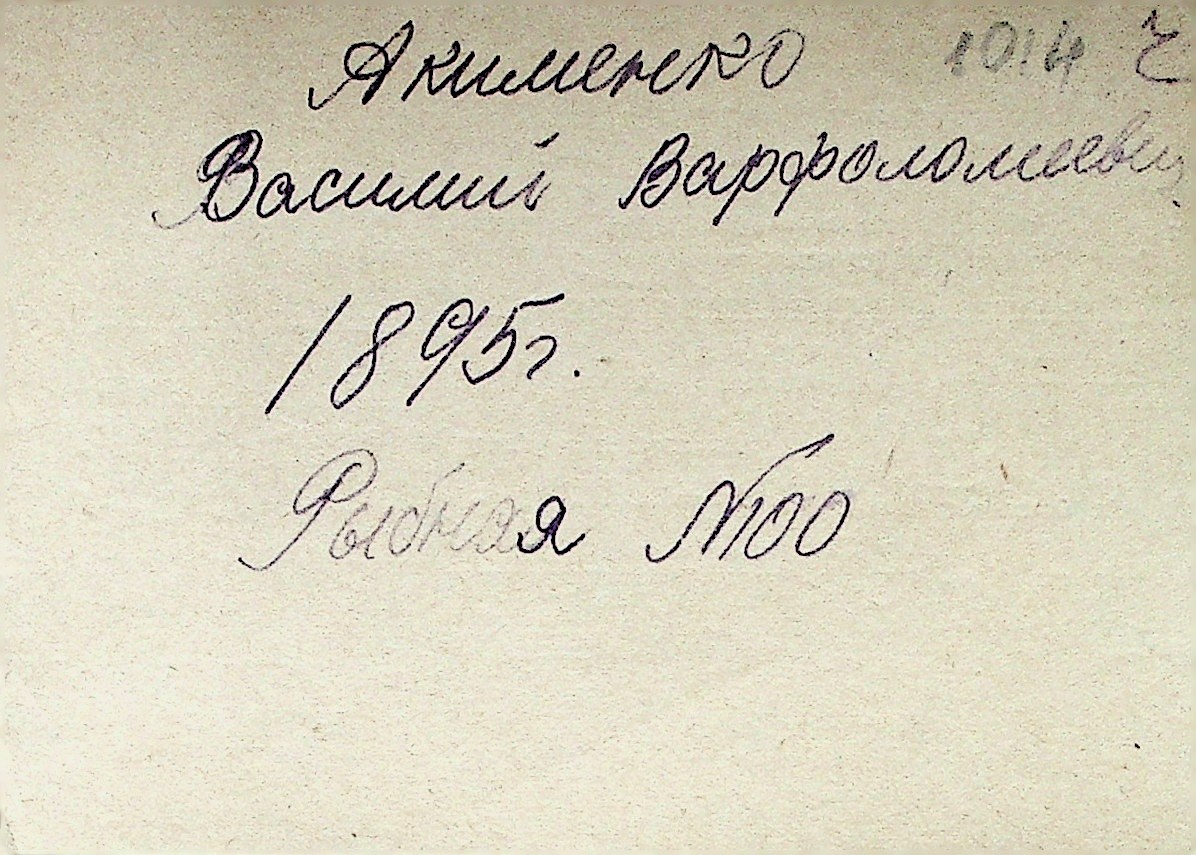 Акименко 1014 г
Василий Варфоломеевич
1895г.
Рыбная №00